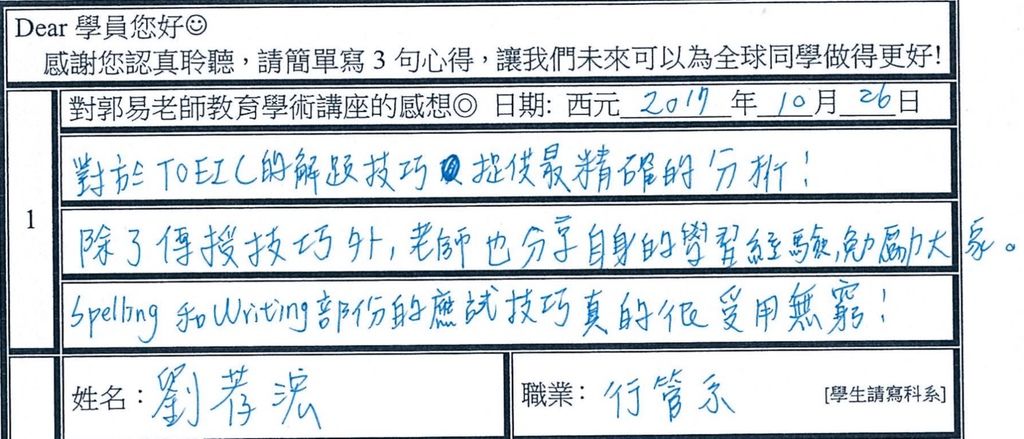 Dear 學員您好☺
感謝您認真聆聽，請簡單寫 3 句心得，讓我們未來可以為全球同學做得更好!
對郭易老師教育學術講座的感想◎ 日期: 西元 2017 年 10 月 26 日
1
對於 TOEIC 的解題技巧 提供最精確的分析!
除了傳授技巧外,老師也分享自身的學習經驗,勉勵大家。
Spelling 和 Writing 部份的應試技巧真的很受用無窮!
姓名：劉 職業：行管系 [學生請寫科系]